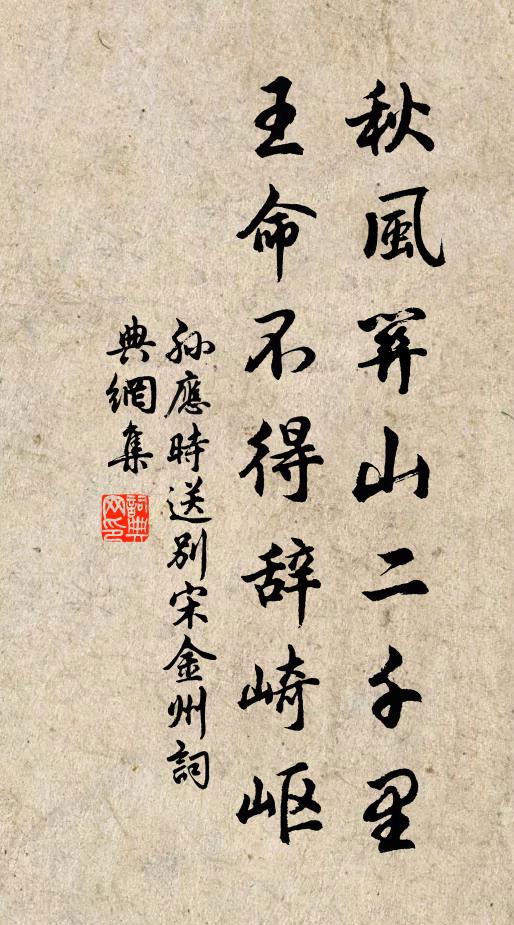 秋風關山二千里
王命不得辞崎岖
孫應時送别宋金州詞
典網集
詞典网印